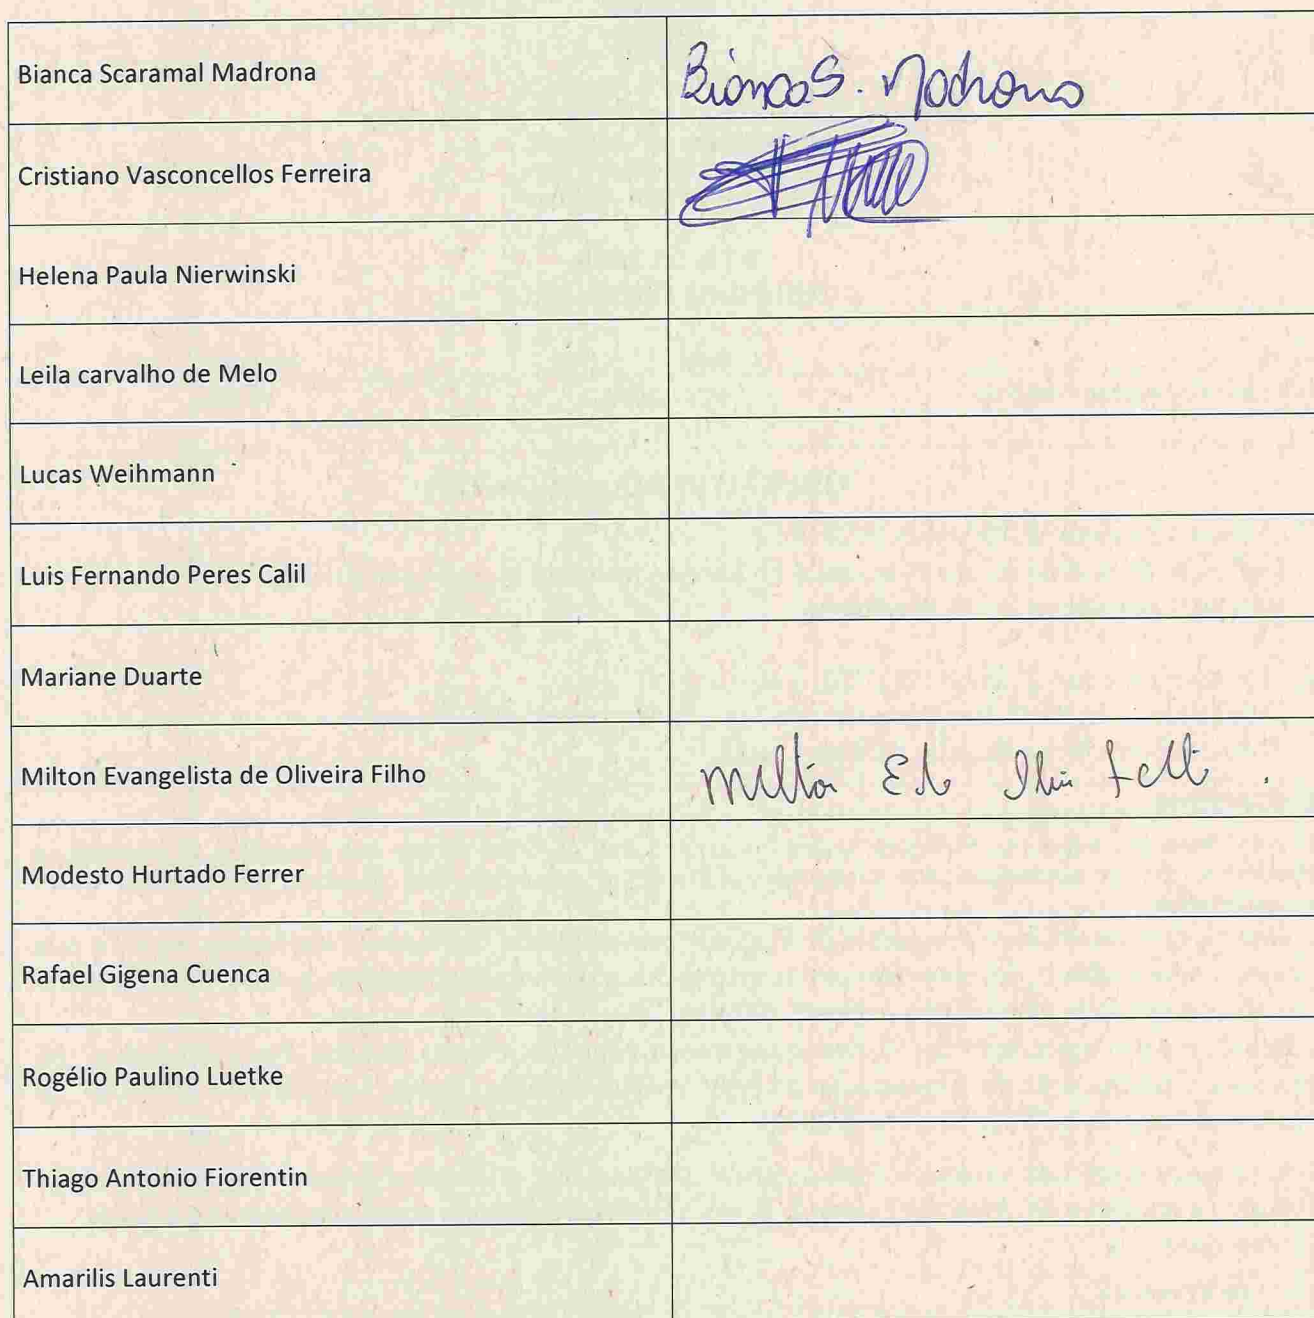 Bianca Scaramal Madrona
Bianca S. Madrona
Cristiano Vasconcellos Ferreira
Helena Paula Nierwinski
Leila carvalho de Melo
Lucas Weihmann
Luis Fernando Peres Calil
Mariane Duarte
Milton Evangelista de Oliveira Filho
Milton
Modesto Hurtado Ferrer
Rafael Gigena Cuenca
Rogélio Paulino Luetke
Thiago Antonio Fiorentin
Amarilis Laurenti